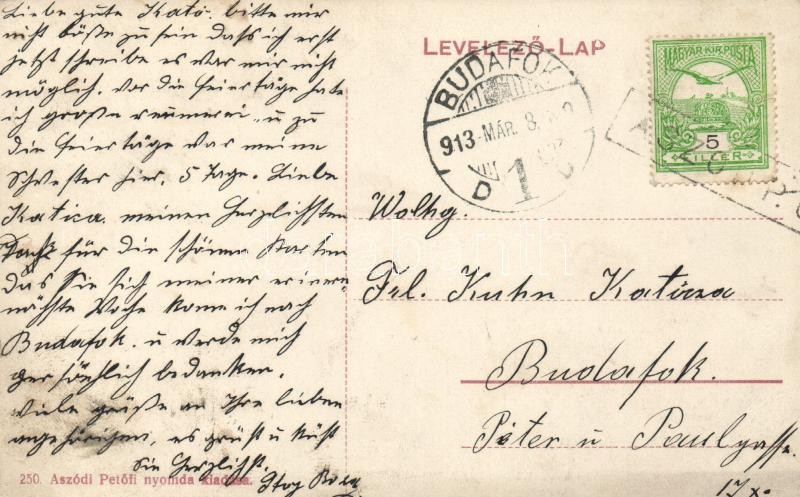 Liebe gute Kató. bitte mir
nicht böse zu sein dass ich erst
jetzt schreibe es war mir nicht
möglich. vor die feiertäge hate
ich große rennerei u zu
die feiertäge war meine
Schwester hier, 5 Tage. Liebe
Katica. meinen Herzlichsten
Dank für die schöne Karten
das Sie sich meiner
nächste Woche kome ich nach
Budafok. u werde mich
persöhlich bedanken.
Viele grüße an Ihre lieben
angehörigen, es grüst u küst
Sie Herzlichst.
250. Aszódi Petőfi nyomda kiadása.
LEVELEZŐ-LAP
BUDAFOK
913 MÁR. 8.
D 1
MAGYAR KIR. POSTA
5
FILLÉR
Wolhg.
Frl. Kuhn Katicza
Budafok.
Péter u Paulgasse.